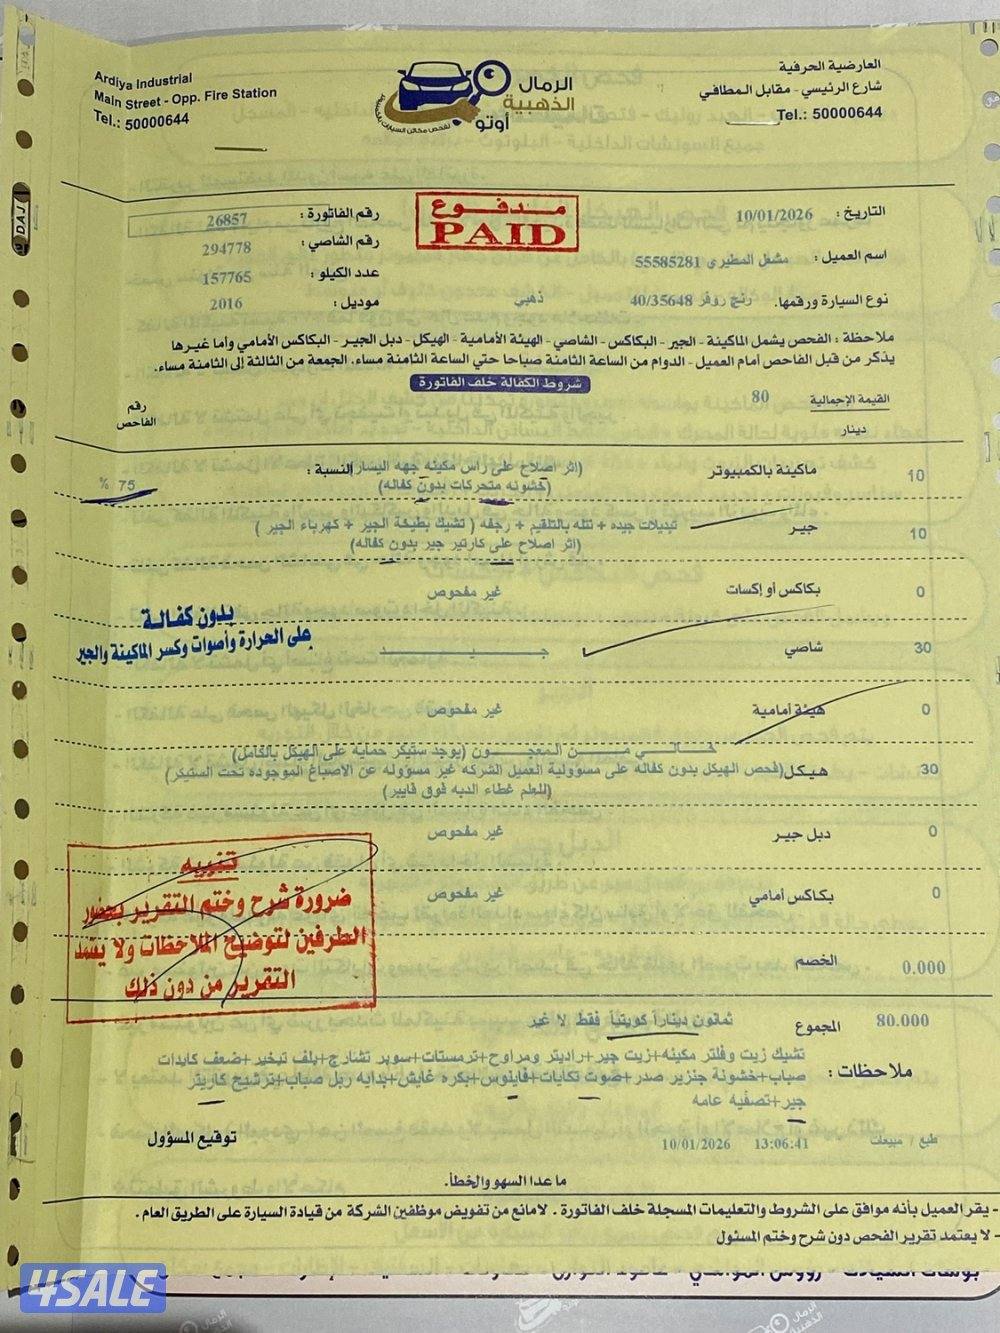 العارضية الحرفية
شارع الرئيسي - مقابل المطافي
Tel.: 50000644
الرمال
الذهبية
أوتو
لفحص مكائن السيارات بالكمبيوتر
Ardiya Industrial
Main Street - Opp. Fire Station
Tel.: 50000644
مدفوع
PAID
التاريخ : 10/01/2026
رقم الفاتورة : 26857
اسم العميل : مشعل المطيري 55585281
رقم الشاصي : 294778
عدد الكيلو : 157765
نوع السيارة ورقمها. رنج روفر 40/35648 ذهبي
موديل : 2016
ملاحظة : الفحص يشمل الماكينة - الجير - البكاكس - الشاصي - الهيئة الأمامية - الهيكل - دبل الجير - البكاكس الأمامي وأما غيرها
يذكر من قبل الفاحص أمام العميل - الدوام من الساعة الثامنة صباحا حتي الساعة الثامنة مساء. الجمعة من الثالثة إلى الثامنة مساء.
شروط الكفالة خلف الفاتورة
القيمة الإجمالية 80
دينار
رقم
الفاحص
10 ماكينة بالكمبيوتر (اثر اصلاح على راس مكينه جهه اليسار) النسبة :
(خشونه متحركات بدون كفاله) 75 %
10 جير تبديلات جيده + تتله بالتلقيم + رجفه ( تشيك بطيخة الجير + كهرباء الجير )
(اثر اصلاح على كارتير جير بدون كفاله)
0 بكاكس أو إكسات غير مفحوص
بدون كفالة
على الحرارة وأصوات وكسر الماكينة والجير
30 شاصي جـــــــيـــــــد
0 هيئة أمامية غير مفحوص
خـــالـــي مـــن المعجـــون (يوجد ستيكر حمايه على الهيكل بالكامل)
30 هيكل (فحص الهيكل بدون كفاله على مسؤولية العميل الشركه غير مسؤوله عن الاصباغ الموجوده تحت الستيكر)
(للعلم غطاء الدبه فوق فايبر)
0 دبل جير غير مفحوص
0 بكاكس أمامي غير مفحوص
تنبيه
ضرورة شرح وختم التقرير بحضور
الطرفين لتوضيح الملاحظات ولا يعتمد
التقرير من دون ذلك
0.000 الخصم
80.000 المجموع ثمانون ديناراً كويتياً فقط لا غير
ملاحظات : تشيك زيت وفلتر مكينه+زيت جير+راديتر ومراوح+ترمستات+سوبر تشارج+بلف تبخير+ضعف كايدات
صباب+خشونة جنزير صدر+صوت تكايات+فاينوس+بكره غايش+بدايه ربل صباب+ترشيح كاريتر
جير+تصفيه عامه
طبع / مبيعات 13:06:41 10/01/2026
توقيع المسؤول
ما عدا السهو والخطأ.
- يقر العميل بأنه موافق على الشروط والتعليمات المسجلة خلف الفاتورة . لامانع من تفويض موظفين الشركة من قيادة السيارة على الطريق العام .
- لا يعتمد تقرير الفحص دون شرح وختم المسئول
4SALE